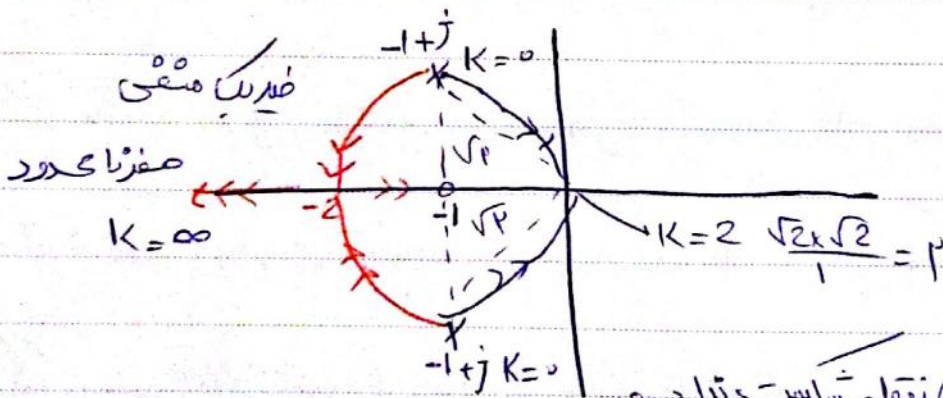 -1+j K=0
ضریب منفی
صفر نامحدود
K=∞
-2
-1
√2
√2
K=2 √2×√2/1 = 2
-1+j K=0